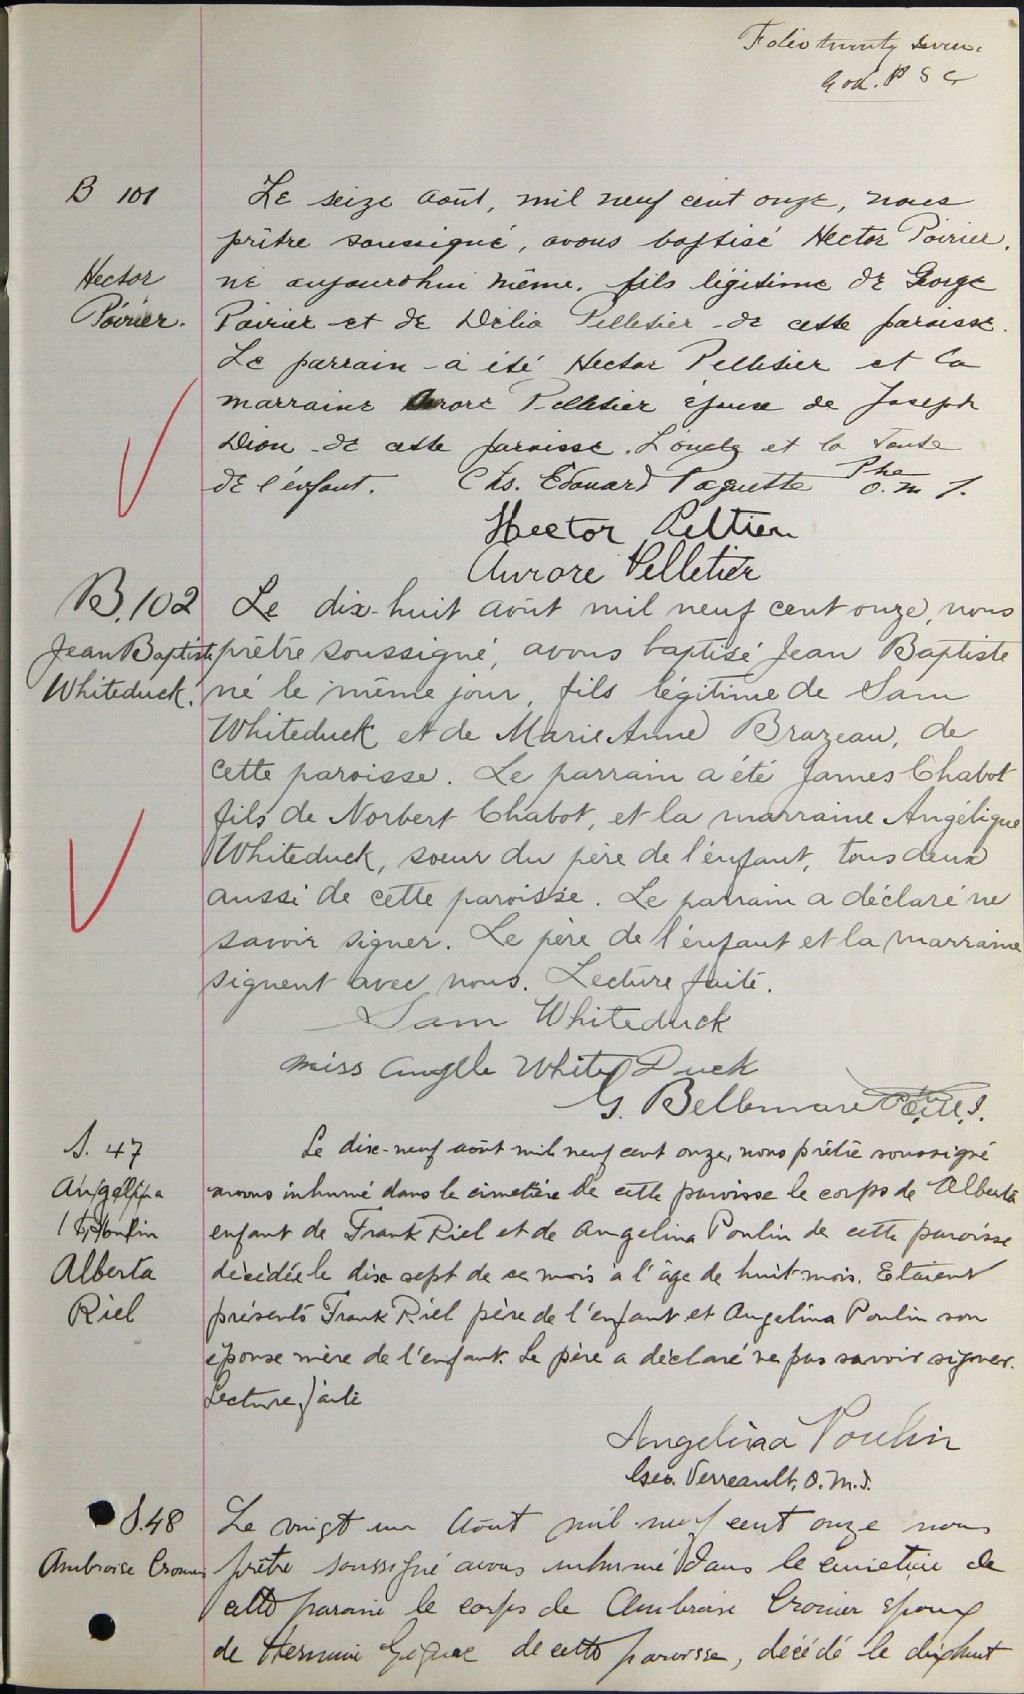 Folio twenty seven.
B 101
Hector
Poirier.
Le seize août, mil neuf cent onze, nous
prêtre soussigné, avons baptisé Hector Poirier,
né aujourdhui même, fils légitime de George
Poirier et de Délia Pelletier de cette paroisse.
Le parrain a été Hector Pelletier et la
marraine Aurore Pelletier épouse de Joseph
Dion de cette paroisse. L'oncle et la tante
de l'enfant. Chs. Edouard Paquette Ptre O.M.I.
Hector Peltier
Aurore Pelletier
B.102
Jean Baptiste
Whiteduck.
Le dix-huit août mil neuf cent onze, nous
prêtre soussigné, avons baptisé Jean Baptiste
né le même jour, fils légitime de Sam
Whiteduck et de Marie Anne Brazeau, de
cette paroisse. Le parrain a été James Chabot
fils de Norbert Chabot, et la marraine Angélique
Whiteduck, soeur du père de l'enfant, tous deux
aussi de cette paroisse. Le parrain a déclaré ne
savoir signer. Le père de l'enfant et la marraine
signent avec nous. Lecture faite.
Sam Whiteduck
miss Angele White Duck
G. Bellemare
S. 47
Angelina
Poulin
Alberta
Riel
Le dix-neuf août mil neuf cent onze, nous prêtre soussigné
avons inhumé dans le cimetière de cette paroisse le corps de Alberta
enfant de Frank Riel et de Angelina Poulin de cette paroisse
décédée le dix sept de ce mois à l'âge de huit mois. Etaient
présents Frank Riel père de l'enfant et Angelina Poulin son
épouse mère de l'enfant. Le père a déclaré ne pas savoir signer.
Lecture faite
Angelina Poulin
Geo. Verreault, O.M.I.
S.48
Ambroise Cronier
Le vingt un Août mil neuf cent onze nous
prêtre soussigné avons inhumé dans le cimetière de
cette paroisse le corps de Ambroise Cronier époux
de Hermine de cette paroisse, décédé le dixhuit